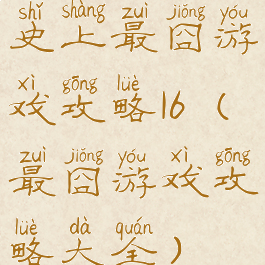 shǐ shàng zuì jiǒng yóu
史上最囧游
xì gōng lüè
戏攻略16（
zuì jiǒng yóu xì gōng
最囧游戏攻
lüè dà quán
略大全）